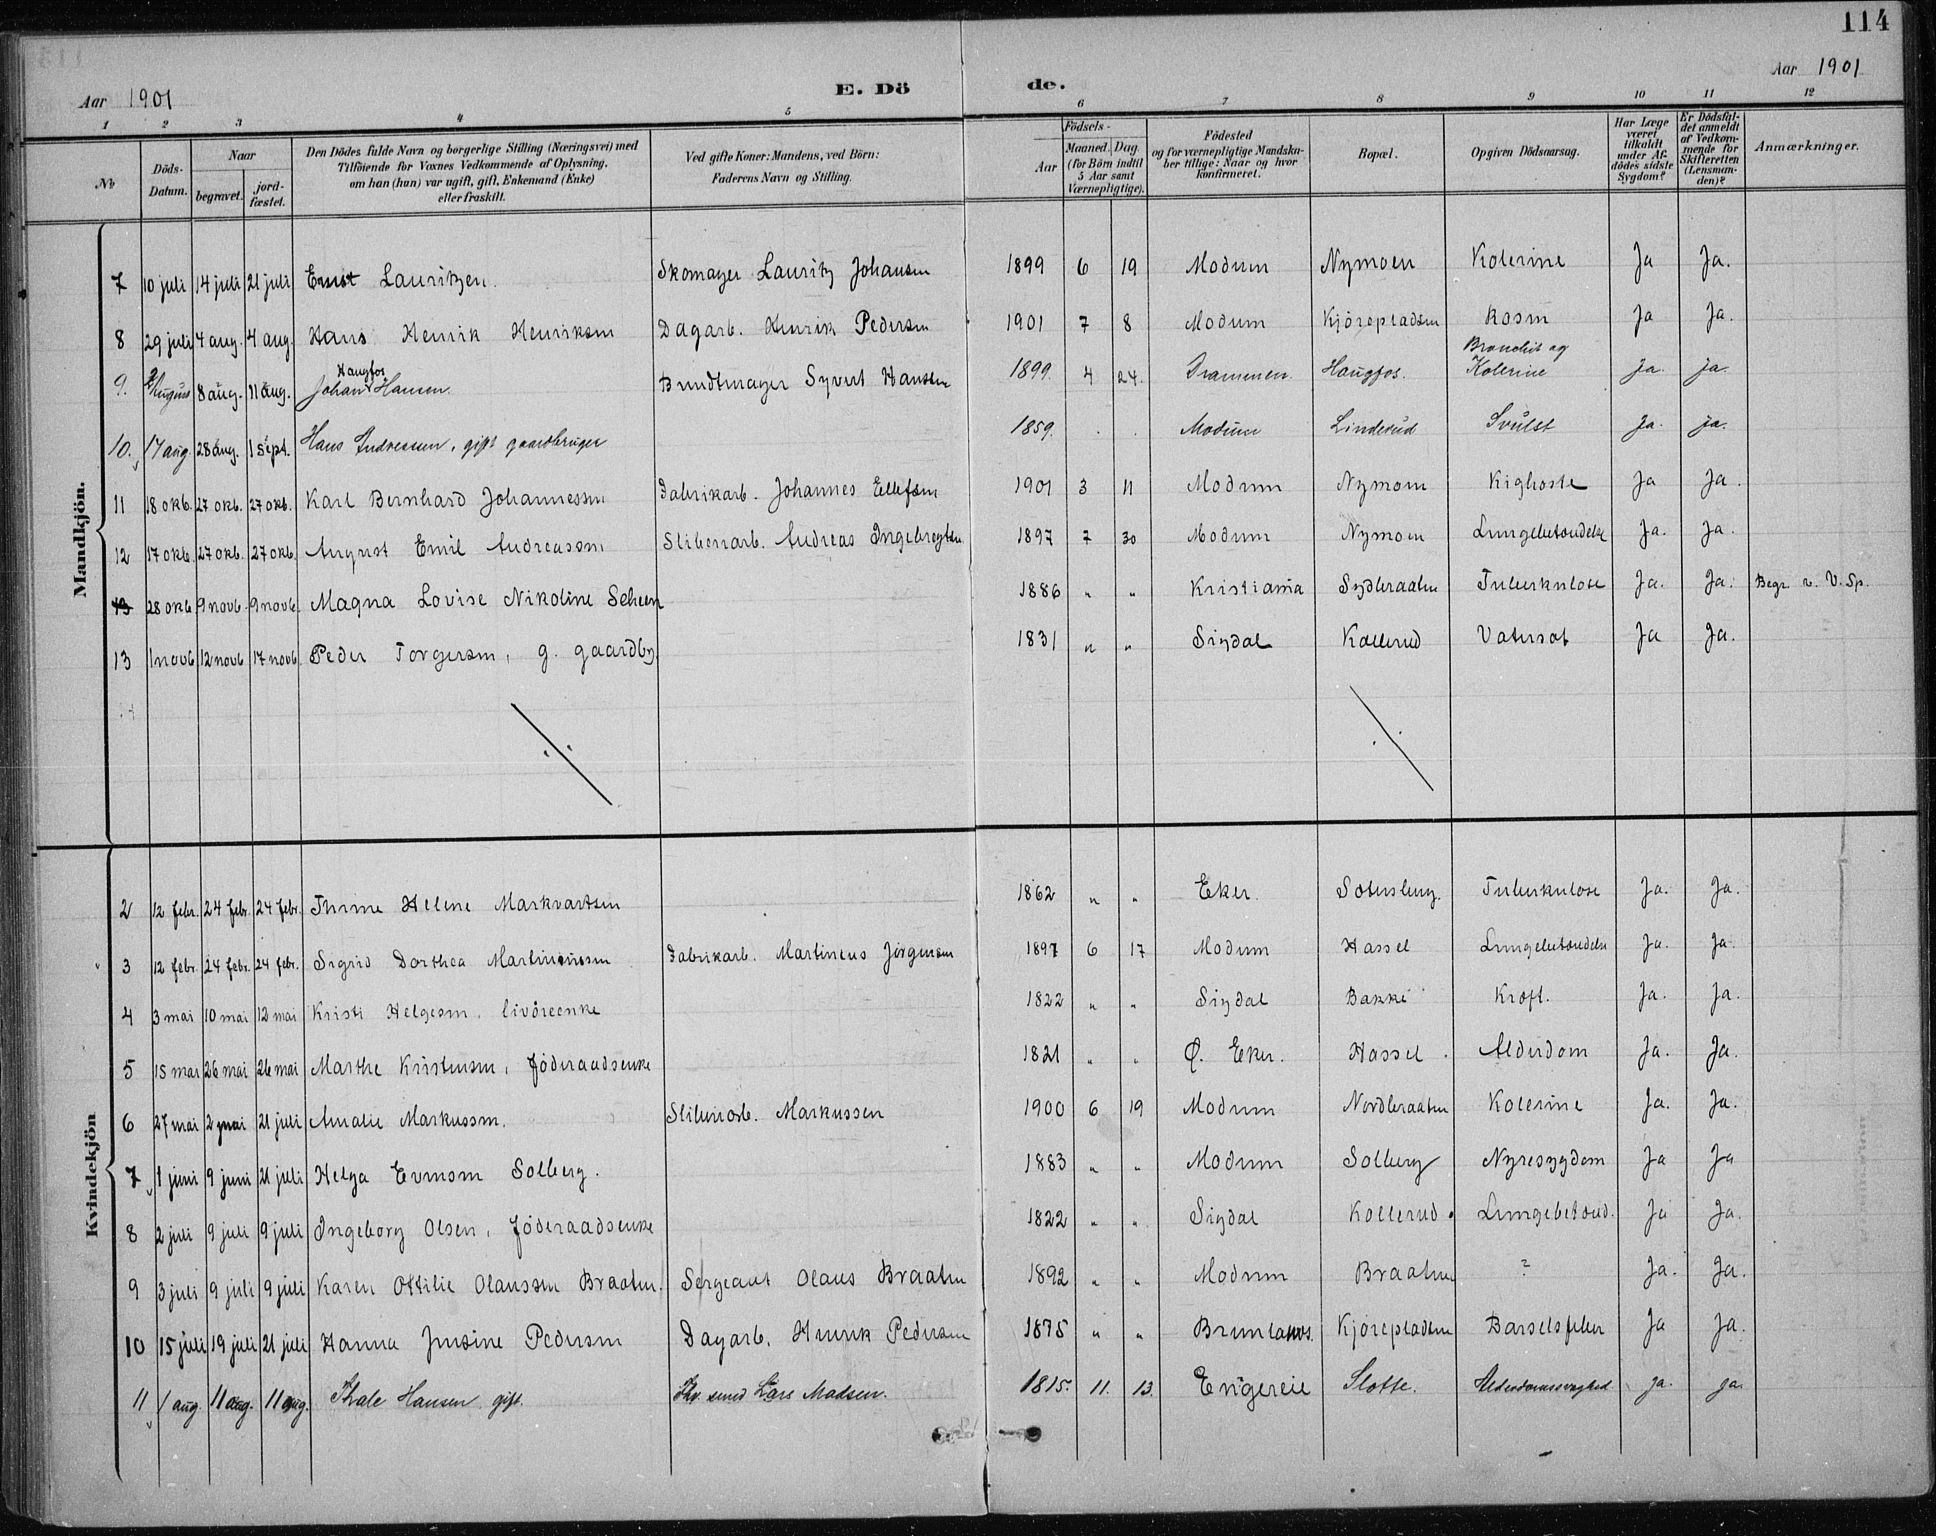 114
Aar 1901 E. Dö de. Aar 1901
1 2 3 4 5 6 7 8 9 10 11 12
No Döds-Datum. Naar begravet. jord-fæstet. Den Dödes fulde Navn og borgerlige Stilling (Næringsvei) med Tilföiende for Voxnes Vedkommende af Oplysning, om han (hun) var ugift, gift, Enkemand (Enke) eller fraskilt. Ved gifte Koner: Mandens, ved Börn: Faderens Navn og Stilling. Födsels- Aar Maaned. Dag (for Börn indtil 5 Aar samt Værnepligtige). Födested og for værnepligtige Mandska-ber tillige: Naar og hvor konfirmeret. Bopæl. Opgiven Dödsaarsag. Har Læge været tilkaldt under Af-dödes sidste Sygdom? Er Dödsfal-det anmeldt af Vedkom-mende for Skifteretten (Lensman-den)? Anmærkninger.
Mandkjön.
7 10 juli 14 juli 21 juli Ernst Lauritzen. Skomager Lauritz Johansen 1899 6 19 Modum Nymoen Kolerine Ja Ja.
8 29 juli 4 aug. 4 aug. Hans Henrik Henriksen Dagarb. Henrik Pedersen 1901 7 8 Modum Kjörepladsen Ja Ja.
9. August 8 aug. 11 aug. Johan Haugfos Hansen. Bundtmager Syvert Hansen 1899. 4 24. Drammen. Haugfos. Bronchit og Kolerine Ja. ja.
10. 17 aug. 28 aug. 1 sept. Hans Andreassen, gift gaardbruger 1859. . . Modum Linderud Svulst Ja. ja.
11 18 okb. 27 okb. 27 okb. Karl Bernhard Johannessen Fabrikarb. Johannes Ellefsen 1901 3 11 Modum Nymoen Kighoste Ja Ja.
12 17 okb. 27 okb. 27 okb. August Emil Andreassen Sliberiarb. Andreas Ingebregtsen 1897 7 30 Modum Nymoen Lungebetændelse Ja. Ja.
13 28 okb 9 novb. 9 novb. Magna Lovise Nikoline Scheen 1886 " " Kristiania Sydbraaten Tuberkulose Ja. Ja. Begr. v. V. Sp.
13 1 novb 12 novb 17 novb. Peder Torgersen, g. gaardbg. 1831 " " Sigdal Kollerud Vatersot Ja Ja.
Kvindekjön
2 12 febr. 24 febr. 24 febr. Thrine Helene Markvartsen 1862 " " Eker. Tuberkulose Ja. Ja.
3 12 febr. 24 febr. 24 febr. Sigrid Dorthea Martiniusen Fabrikarb. Martineus Jörgensen 1897 6 17 Modum Hassel Lungebetændelse Ja. Ja.
4 3 mai 10 mai 12 mai Kristi Helgesen, livöreenke 1822 " " Sigdal Bakke Kræft. Ja. Ja.
5 15 mai 26 mai 26 mai Marthe Kristensen, föderaadsenke 1821 " " Ö. Eker. Hassel. Alderdom Ja. Ja.
6 27 mai 2 juni 21 juli Amalie Markussen. Sliberiarb. Markussen 1900 6 19 Modum Nordbraaten Kolerine Ja. Ja.
7 1 juni 9 juni 21 juli Helga Evensen Solberg. 1883 " " Modum Solberg Nyresygdom Ja Ja
8 2 juli 9 juli 9 juli Ingeborg Olsen, föderaadsenke 1822 " " Sigdal Kollerud. Lungebetænd. Ja Ja.
9 3 juli 9 juli 9 juli Karen Ottilie Olaussen Braaten. Sergeant Olaus Braaten 1892 " " Modum Braaten ? Ja. Ja.
10 15 juli 19 juli 21 juli Hanna Jensine Pedersen Dagarb. Henrik Pedersen 1875 " " Brunlanes. Kjörepladsen Barselfeber Ja Ja.
11 1 aug. 11 aug. 11 aug. Thale Hansen, gift. Lars Madsen. 1815. 11. 13. Engereie Slotte. Alderdomssvaghed ja. ja.